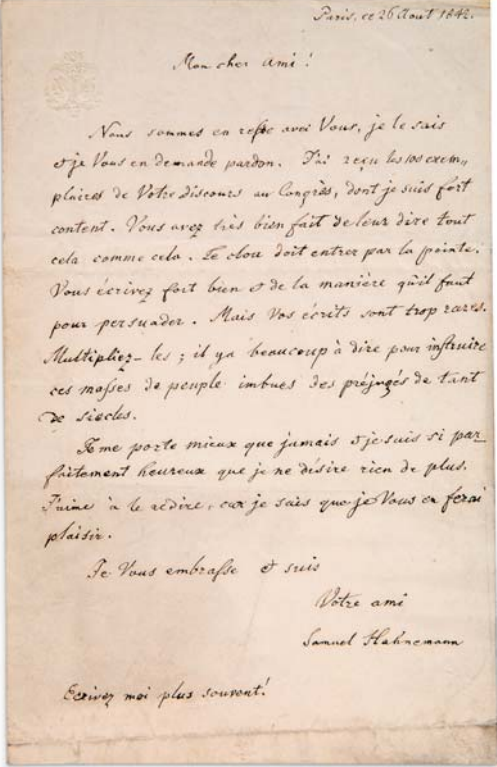 Paris, ce 26 Aout 1842.
Mon cher ami !
Nous sommes en reste avec Vous, je le sais
et je Vous en demande pardon. J'ai reçu les 100 exem-
plaires de Votre discours au Congrès, dont je suis fort
content. Vous avez très bien fait de leur dire tout
cela comme cela. Le clou doit entrer par la pointe.
Vous écrivez fort bien et de la manière qu'il faut
pour persuader. Mais Vos écrits sont trop rares.
Multipliez-les ; il y a beaucoup à dire pour instruire
ces masses de peuple imbues des préjugés de tant
de siecles.
Je me porte mieux que jamais et je suis si par-
faitement heureux que je ne désire rien de plus.
J'aime à le redire, car je sais que je Vous en ferai
plaisir.
Je Vous embrasse et suis
Votre ami
Samuel Hahnemann
Ecrivez moi plus souvent!